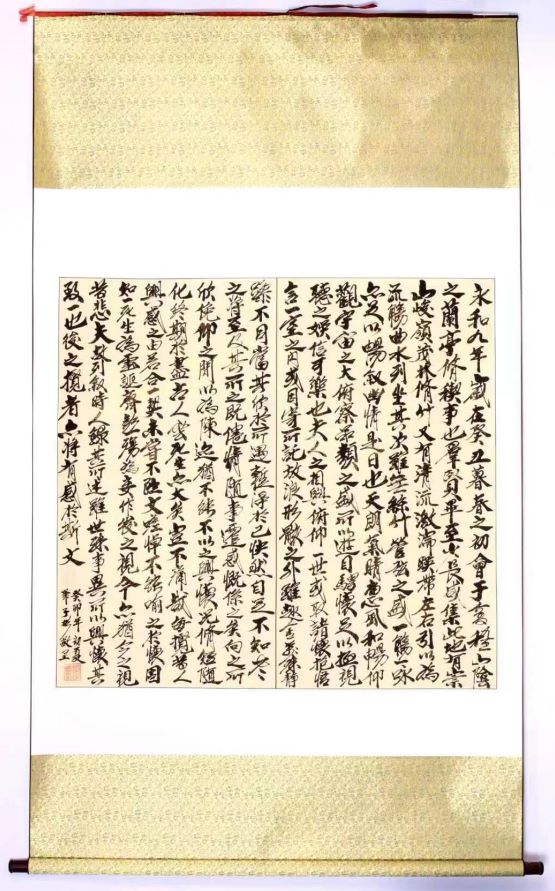 永和九年歲在癸丑暮春之初會于會稽山陰
之蘭亭修禊事也羣賢畢至少長咸集此地有崇
山峻嶺茂林修竹又有清流激湍映帶左右引以為
流觴曲水列坐其次雖無絲竹管弦之盛一觴一詠
亦足以暢敘幽情是日也天朗氣清惠風和暢仰
觀宇宙之大俯察品類之盛所以遊目騁懷足以極視
聽之娛信可樂也夫人之相與俯仰一世或取諸懷抱悟
言一室之內或因寄所託放浪形骸之外雖趣舍萬殊靜
躁不同當其欣於所遇暫得於己快然自足不知老
之將至及其所之既倦情隨事遷感慨係之矣向之所
欣俛仰之間以為陳迹猶不能不以之興懷況修短隨
化終期於盡古人云死生亦大矣豈不痛哉每攬昔人
興感之由若合一契未嘗不臨文嗟悼不能喻之於懷固
知一死生為虛誕齊彭殤為妄作後之視今亦猶今之視
昔悲夫故列敘時人錄其所述雖世殊事異所以興懷其
致一也後之攬者亦將有感於斯文
癸卯年初夏